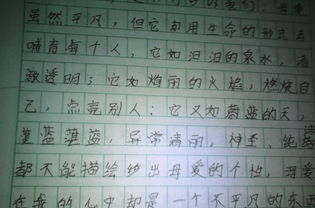 虽然平凡，但它却用生命的形式去
哺育每个人，它如汩汩的泉水，清
澈透明；它如焰丽的火焰，燃烧自
己，点亮别人；它又如蔚蓝的天，
蓝蓝，异常清丽，神圣、纯
都不能描绘出母爱的个性，母爱
在我的心中却是一个不平凡的东西